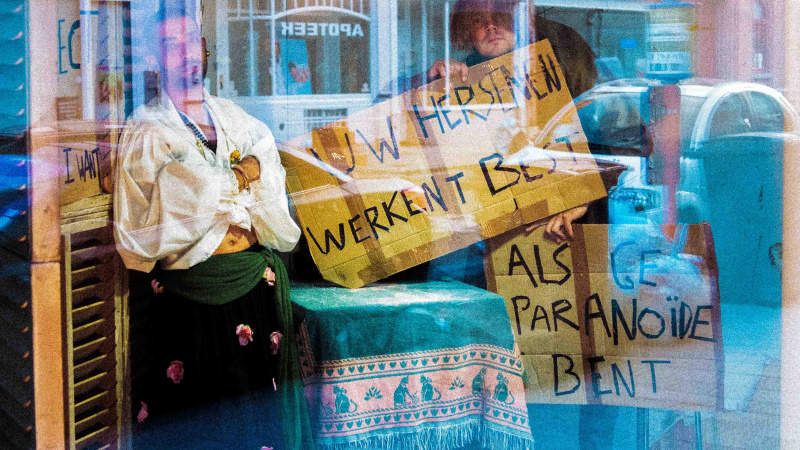 APOTEEK
I WANT
UW HERSENEN
WERKENT BEST
ALS GE
PARANOÏDE
BENT